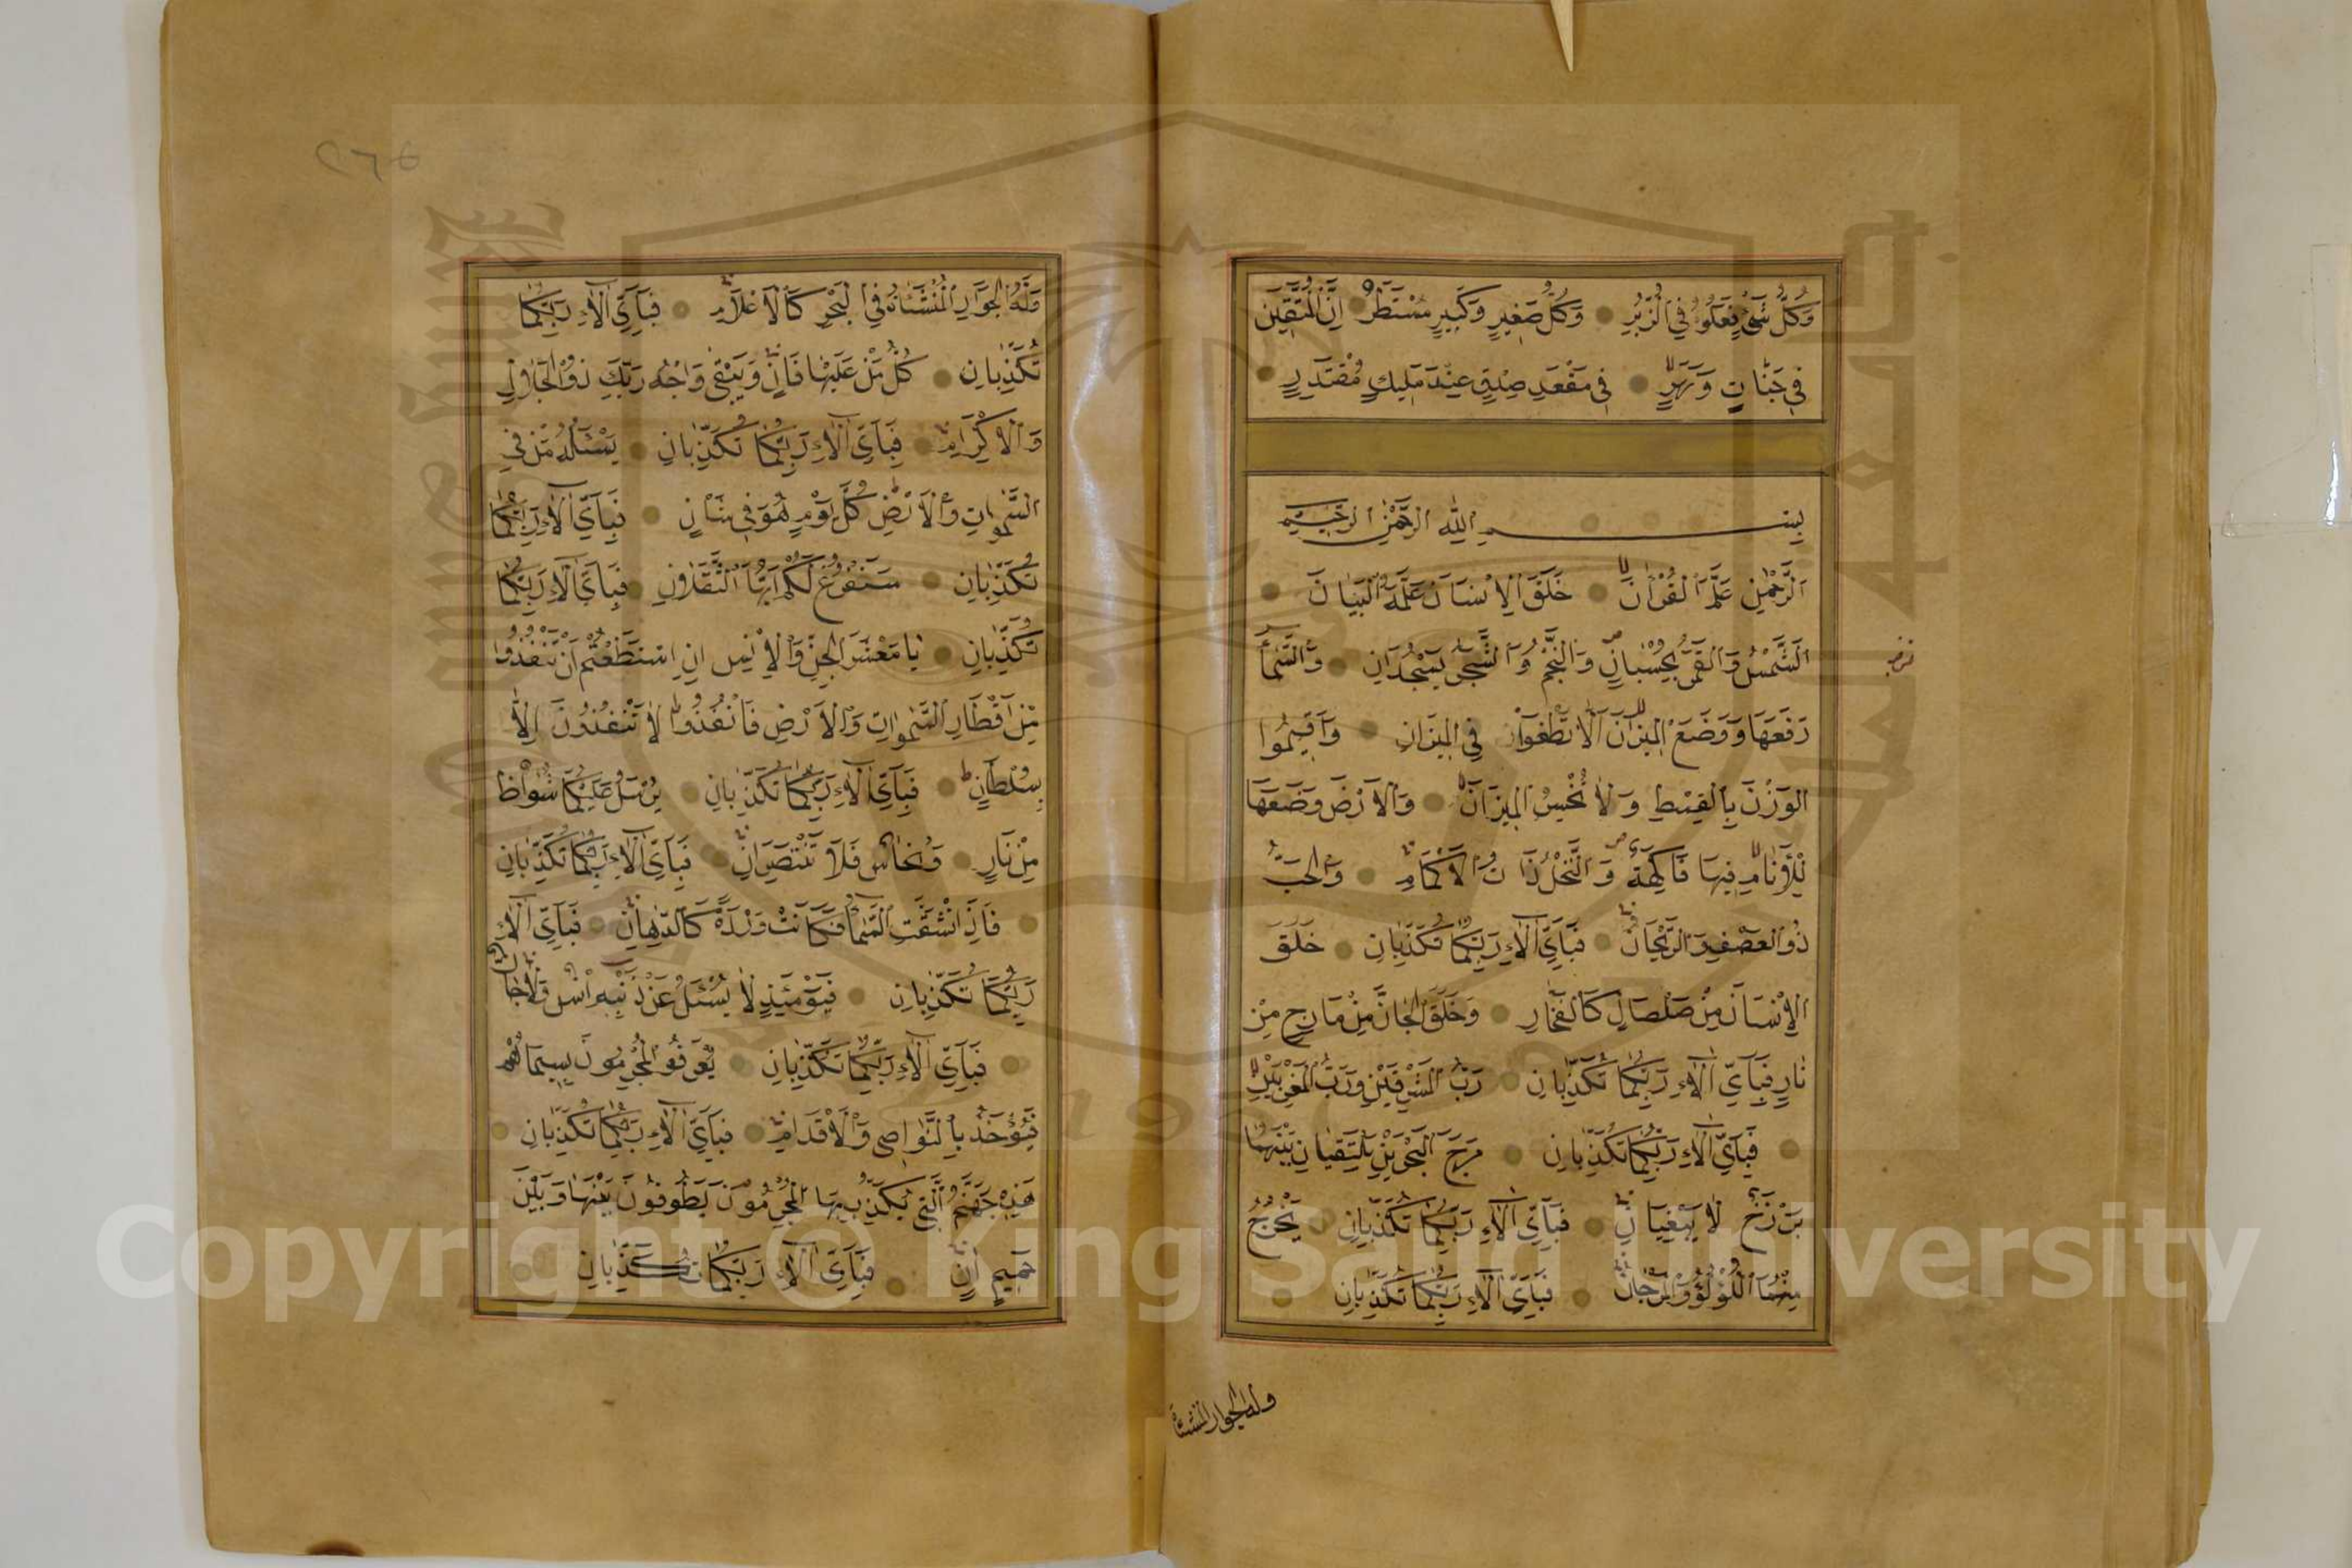 وَكُلُّ شَيْءٍ فَعَلُوهُ فِي الزُّبُرِ وَكُلُّ صَغِيرٍ وَكَبِيرٍ مُسْتَطَرٌ اِنَّ الْمُتَّقِينَ
فِي جَنَّاتٍ وَنَهَرٍ فِي مَقْعَدِ صِدْقٍ عِنْدَ مَلِيكٍ مُقْتَدِرٍ
بِسْمِ اللّٰهِ الرَّحْمٰنِ الرَّحِيمِ
اَلرَّحْمٰنُ عَلَّمَ الْقُرْاٰنَ خَلَقَ الْاِنْسَانَ عَلَّمَهُ الْبَيَانَ
اَلشَّمْسُ وَالْقَمَرُ بِحُسْبَانٍ وَالنَّجْمُ وَالشَّجَرُ يَسْجُدَانِ وَالسَّمَاءَ
رَفَعَهَا وَوَضَعَ الْمِيزَانَ اَلَّا تَطْغَوْا فِي الْمِيزَانِ وَاَقِيمُوا
الْوَزْنَ بِالْقِسْطِ وَلَا تُخْسِرُ الْمِيزَانَ وَالْاَرْضَ وَضَعَهَا
لِلْاَنَامِ فِيهَا فَاكِهَةٌ وَالنَّخْلُ ذَاتُ الْاَكْمَامِ وَالْحَبُّ
ذُو الْعَصْفِ وَالرَّيْحَانُ فَبِاَيِّ اٰلَاءِ رَبِّكُمَا تُكَذِّبَانِ خَلَقَ
الْاِنْسَانَ مِنْ صَلْصَالٍ كَالْفَخَّارِ وَخَلَقَ الْجَانَّ مِنْ مَارِجٍ مِنْ
نَارٍ فَبِاَيِّ اٰلَاءِ رَبِّكُمَا تُكَذِّبَانِ رَبُّ الْمَشْرِقَيْنِ وَرَبُّ الْمَغْرِبَيْنِ
فَبِاَيِّ اٰلَاءِ رَبِّكُمَا تُكَذِّبَانِ مَرَجَ الْبَحْرَيْنِ يَلْتَقِيَانِ بَيْنَهُمَا
بَرْزَخٌ لَا يَبْغِيَانِ فَبِاَيِّ اٰلَاءِ رَبِّكُمَا تُكَذِّبَانِ يَخْرُجُ
مِنْهُمَا اللُّؤْلُؤُ وَالْمَرْجَانُ فَبِاَيِّ اٰلَاءِ رَبِّكُمَا تُكَذِّبَانِ
وله الجوار المنشئات
وَلَهُ الْجَوَارِ الْمُنْشَئَاتُ فِي الْبَحْرِ كَالْاَعْلَامِ فَبِاَيِّ اٰلَاءِ رَبِّكُمَا
تُكَذِّبَانِ كُلُّ مَنْ عَلَيْهَا فَانٍ وَيَبْقٰى وَجْهُ رَبِّكَ ذُو الْجَلَالِ
وَالْاِكْرَامِ فَبِاَيِّ اٰلَاءِ رَبِّكُمَا تُكَذِّبَانِ يَسْئَلُهُ مَنْ فِي
السَّمٰوَاتِ وَالْاَرْضِ كُلَّ يَوْمٍ هُوَ فِي شَأْنٍ فَبِاَيِّ اٰلَاءِ رَبِّكُمَا
تُكَذِّبَانِ سَنَفْرُغُ لَكُمْ اَيُّهَا الثَّقَلَانِ فَبِاَيِّ اٰلَاءِ رَبِّكُمَا
تُكَذِّبَانِ يَا مَعْشَرَ الْجِنِّ وَالْاِنْسِ اِنِ اسْتَطَعْتُمْ اَنْ تَنْفُذُوا
مِنْ اَقْطَارِ السَّمٰوَاتِ وَالْاَرْضِ فَانْفُذُوا لَا تَنْفُذُونَ اِلَّا
بِسُلْطَانٍ فَبِاَيِّ اٰلَاءِ رَبِّكُمَا تُكَذِّبَانِ يُرْسَلُ عَلَيْكُمَا شُوَاظٌ
مِنْ نَارٍ وَنُحَاسٌ فَلَا تَنْتَصِرَانِ فَبِاَيِّ اٰلَاءِ رَبِّكُمَا تُكَذِّبَانِ
فَاِذَا انْشَقَّتِ السَّمَاءُ فَكَانَتْ وَرْدَةً كَالدِّهَانِ فَبِاَيِّ اٰلَاءِ
رَبِّكُمَا تُكَذِّبَانِ فَيَوْمَئِذٍ لَا يُسْئَلُ عَنْ ذَنْبِهِ اِنْسٌ وَلَا جَانٌّ
فَبِاَيِّ اٰلَاءِ رَبِّكُمَا تُكَذِّبَانِ يُعْرَفُ الْمُجْرِمُونَ بِسِيمَاهُمْ
فَيُؤْخَذُ بِالنَّوَاصِي وَالْاَقْدَامِ فَبِاَيِّ اٰلَاءِ رَبِّكُمَا تُكَذِّبَانِ
هٰذِهِ جَهَنَّمُ الَّتِي يُكَذِّبُ بِهَا الْمُجْرِمُونَ يَطُوفُونَ بَيْنَهَا وَبَيْنَ
حَمِيمٍ اٰنٍ فَبِاَيِّ اٰلَاءِ رَبِّكُمَا تُكَذِّبَانِ
Copyright © King Saud University